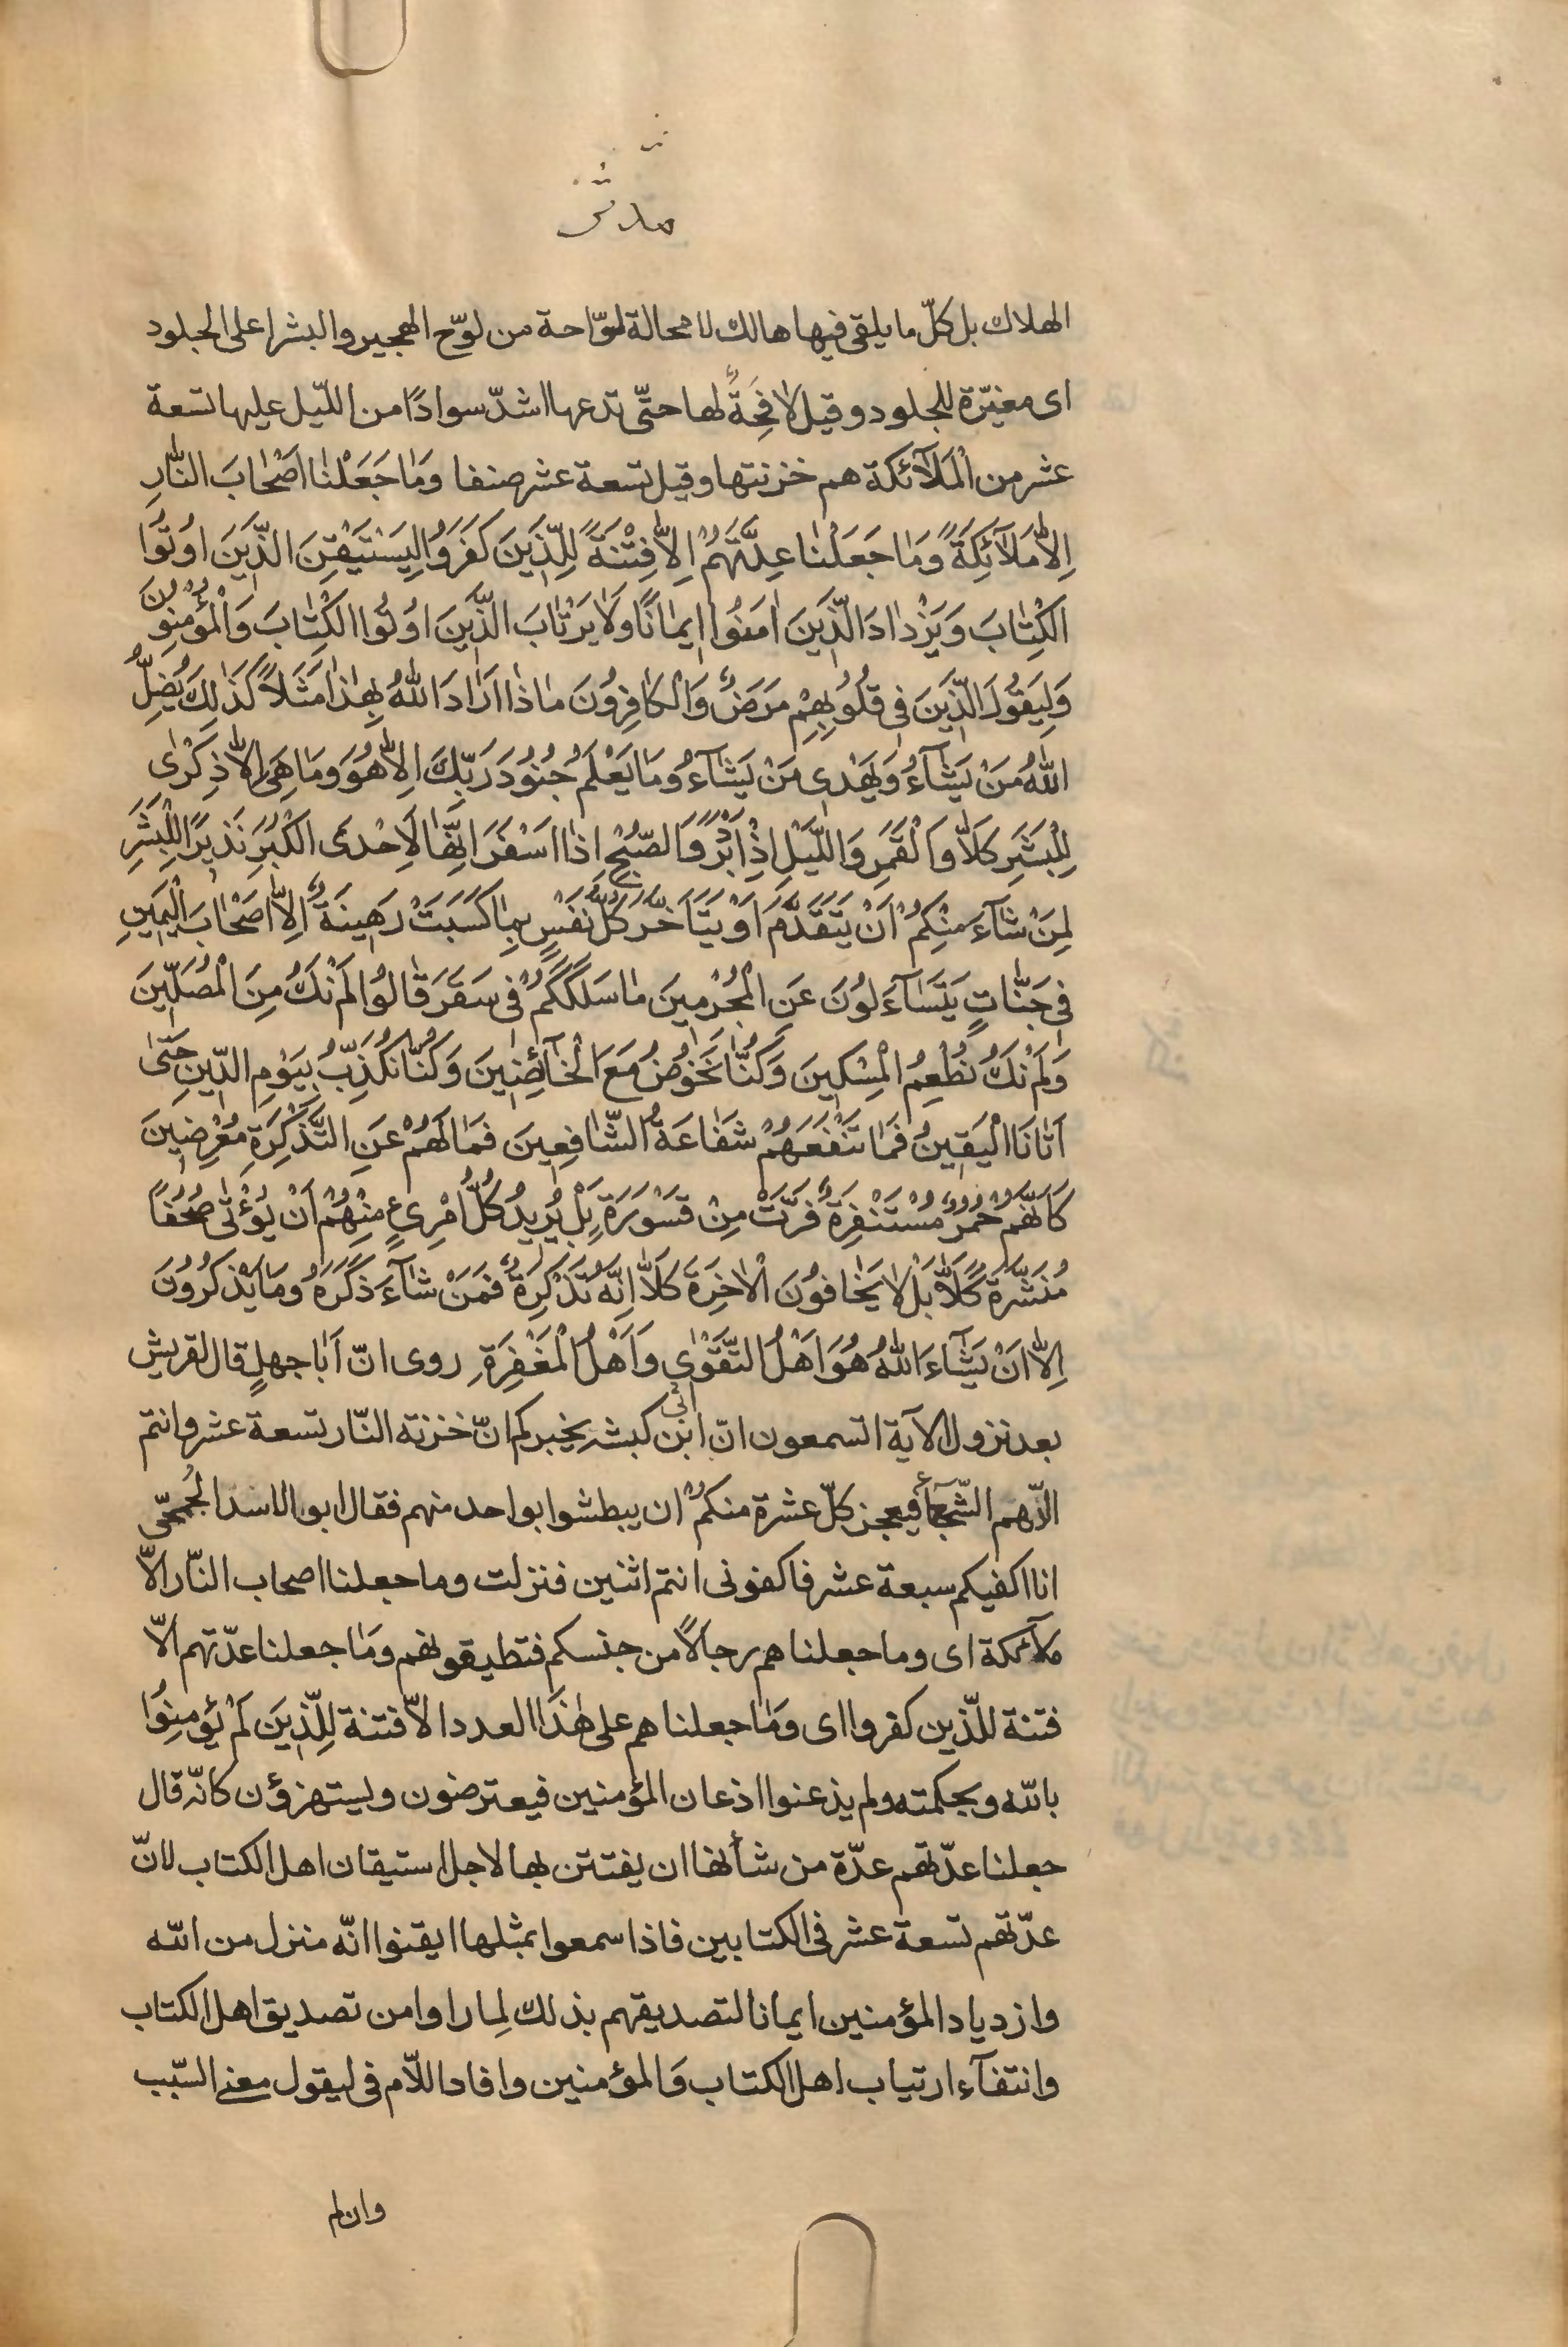 مدثر
الهلاك بل كلّ ما يلقى فيها هالك لا محالة لوّاحة من لوّح الهجير والبشر اعلى الجلود
اى مغيّرة للجلود وقيل لافِحَةٌ لها حتّى تدعها اشدّ سوادًا من اللّيل عليها تسعة
عشر من الْمَلآئكة هم خزنتها وقيل تسعة عشر صنفا وَمٰا جَعَلْنٰا اَصْحٰابَ النّٰارِ
اِلاّٰ مَلآئِكَةً وَمٰا جَعَلْنٰا عِدَّتَهُمْ اِلاّٰ فِتْنَةً لِلَّذِينَ كَفَرُوا لِيَسْتَيْقِنَ الَّذِينَ اوُتُوا
الْكِتٰابَ وَيَزْدٰادَ الَّذِينَ اٰمَنُوا ايمٰانًا وَلٰا يَرْتٰابَ الَّذِينَ اوُتُوا الْكِتٰابَ وَالْمُؤْمِنُونَ
وَلِيَقُولَ الَّذِينَ فى قُلُوبِهِمْ مَرَضٌ وَالْكٰافِرُونَ مٰاذٰا اَرٰادَ اللّٰهُ بِهٰذٰا مَثَلاً كَذٰلِكَ يُضِلُّ
اللّٰهُ مَنْ يَشٰآءُ وَيَهْدى مَنْ يَشٰآءُ وَمٰا يَعْلَمُ جُنُودَ رَبِّكَ اِلاّٰ هُوَ وَمٰا هِىَ اِلاّٰ ذِكْرٰى
لِلْبَشَرِ كَلاّٰ وَالْقَمَرِ وَاللَّيْلِ اِذْ اَدْبَرَ وَالصُّبْحِ اِذٰا اَسْفَرَ اِنَّهٰا لَاِحْدَى الْكُبَرِ نَذيرًا لِلْبَشَرِ
لِمَنْ شٰآءَ مِنْكُمْ اَنْ يَتَقَدَّمَ اَوْ يَتَاَخَّرَ كُلُّ نَفْسٍ بِمٰا كَسَبَتْ رَهينَةٌ اِلاّٰ اَصْحٰابَ الْيَمينِ
فى جَنّٰاتٍ يَتَسٰآءَلُونَ عَنِ الْمُجْرِمينَ مٰا سَلَكَكُمْ فى سَقَرَ قٰالُوا لَمْ نَكُ مِنَ الْمُصَلّينَ
وَلَمْ نَكُ نُطْعِمُ الْمِسْكينَ وَكُنّٰا نَخُوضُ مَعَ الْخٰآئِضينَ وَكُنّٰا نُكَذِّبُ بِيَوْمِ الدّينِ حَتّٰى
اَتٰانَا الْيَقينُ فَمٰا تَنْفَعُهُمْ شَفٰاعَةُ الشّٰافِعينَ فَمٰا لَهُمْ عَنِ التَّذْكِرَةِ مُعْرِضينَ
كَاَنَّهُمْ حُمُرٌ مُسْتَنْفِرَةٌ فَرَّتْ مِنْ قَسْوَرَةٍ بَلْ يُريدُ كُلُّ امْرِىءٍ مِنْهُمْ اَنْ يُؤْتٰى صُحُفًا
مُنَشَّرَةً كَلاّٰ بَلْ لٰا يَخٰافُونَ الْاٰخِرَةَ كَلاّٰ اِنَّهُ تَذْكِرَةٌ فَمَنْ شٰآءَ ذَكَرَهُ وَمٰا يَذْكُرُونَ
اِلاّٰ اَنْ يَشٰآءَ اللّٰهُ هُوَ اَهْلُ التَّقْوٰى وَاَهْلُ الْمَغْفِرَةِ روى انّ اَبٰا جهلٍ قال لقريش
بعد نزول الآية اتسمعون انّ ابن ابى كبشه يخبركم انّ خزنة النّار تسعة عشر وانتم
الدّهم الشّجعٰآء أفيعجز كلّ عشرة منكم ان يبطشوا بواحد منهم فقال ابو الاسد الجُمحّى
انا اكفيكم سبعة عشر فاكفونى انتم اثنين فنزلت وما جعلنا اصحاب النّار الاّ
ملآئكة اى وما جعلناهم رجالًا من جنسكم فتطيقونهم وَمٰا جعلنا عدّتهم الاّ
فتنة للّذين كفروا اى وَمٰا جعلناهم على هٰذَا العدد الاّ فتنة لِلَّذِينَ لَمْ يُؤمِنُوا
باللّه وبحكمته ولم يذعنوا اذعان المؤمنين فيعترضون ويستهزؤن كانّه قال
جعلنا عدّتهم عدّة من شأنها ان يفتتن بها لاجل استيقان اهل الكتاب لانّ
عدّتهم تسعة عشر فى الكتابين فاذا سمعوا بمثلها ايقنوا انّه منزل من اللّه
وازدياد المؤمنين ايمانا لتصديقهم بذلك لِما راوا من تصديق اهل الكتاب
وانتفآء ارتياب اهل الكتاب وَالمؤمنين وافاد اللّام فى ليقول معنى السّبب
وان لم